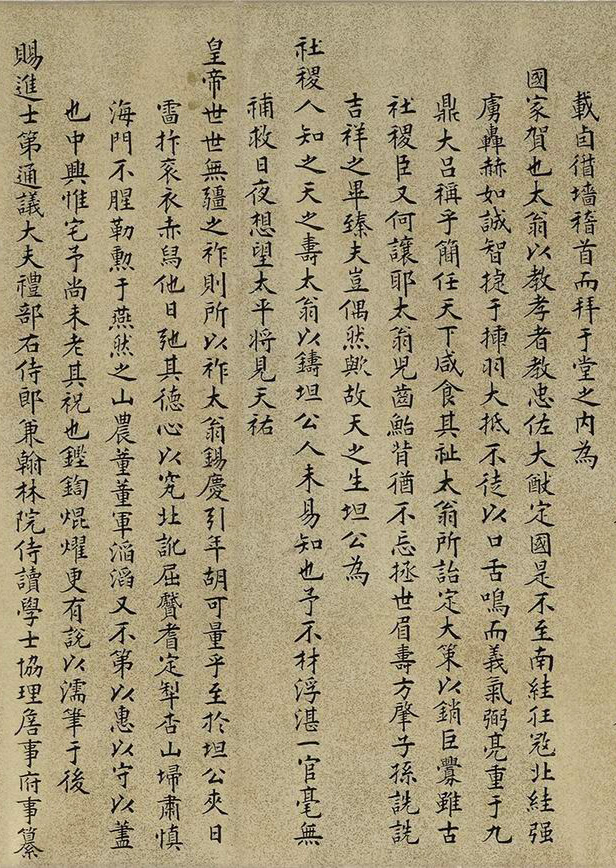 載卣僣墻稽首而拜于堂之内為
國家賀也太翁以教孝者教忠佐大猷定國是不至南絓狂寇北絓强
虜轟赫如誠智捷于揷羽大抵不徒以口舌鳴而義氣弼亮重于九
鼎大吕稱乎簡任天下咸食其祉太翁所詒定大策以銷巨釁雖古
社稷臣又何讓耶太翁兒齒鮐背猶不忘拯世眉壽方肇子孫詵詵
吉祥之畢臻夫豈偶然歟故天之生坦公為
社稷人知之天之壽太翁以鑄坦公人未易知也予不材浮湛一官毫無
補救日夜想望太平将見天祐
皇帝世世無疆之祚則所以祚太翁錫慶引年胡可量乎至於坦公夾日
雷抃衮衣赤舄他日虵其德心以究北訛屈贇耆定犁杏山埽肅慎
海門不腥勒勲于燕然之山農董董軍滔滔又不第以惠以守以蓋
也中興惟宅予尚未老其祝也鏗鍧焜燿更有說以濡筆于後
賜進士第通議大夫禮部右侍郎兼翰林院侍讀學士協理詹事府事纂